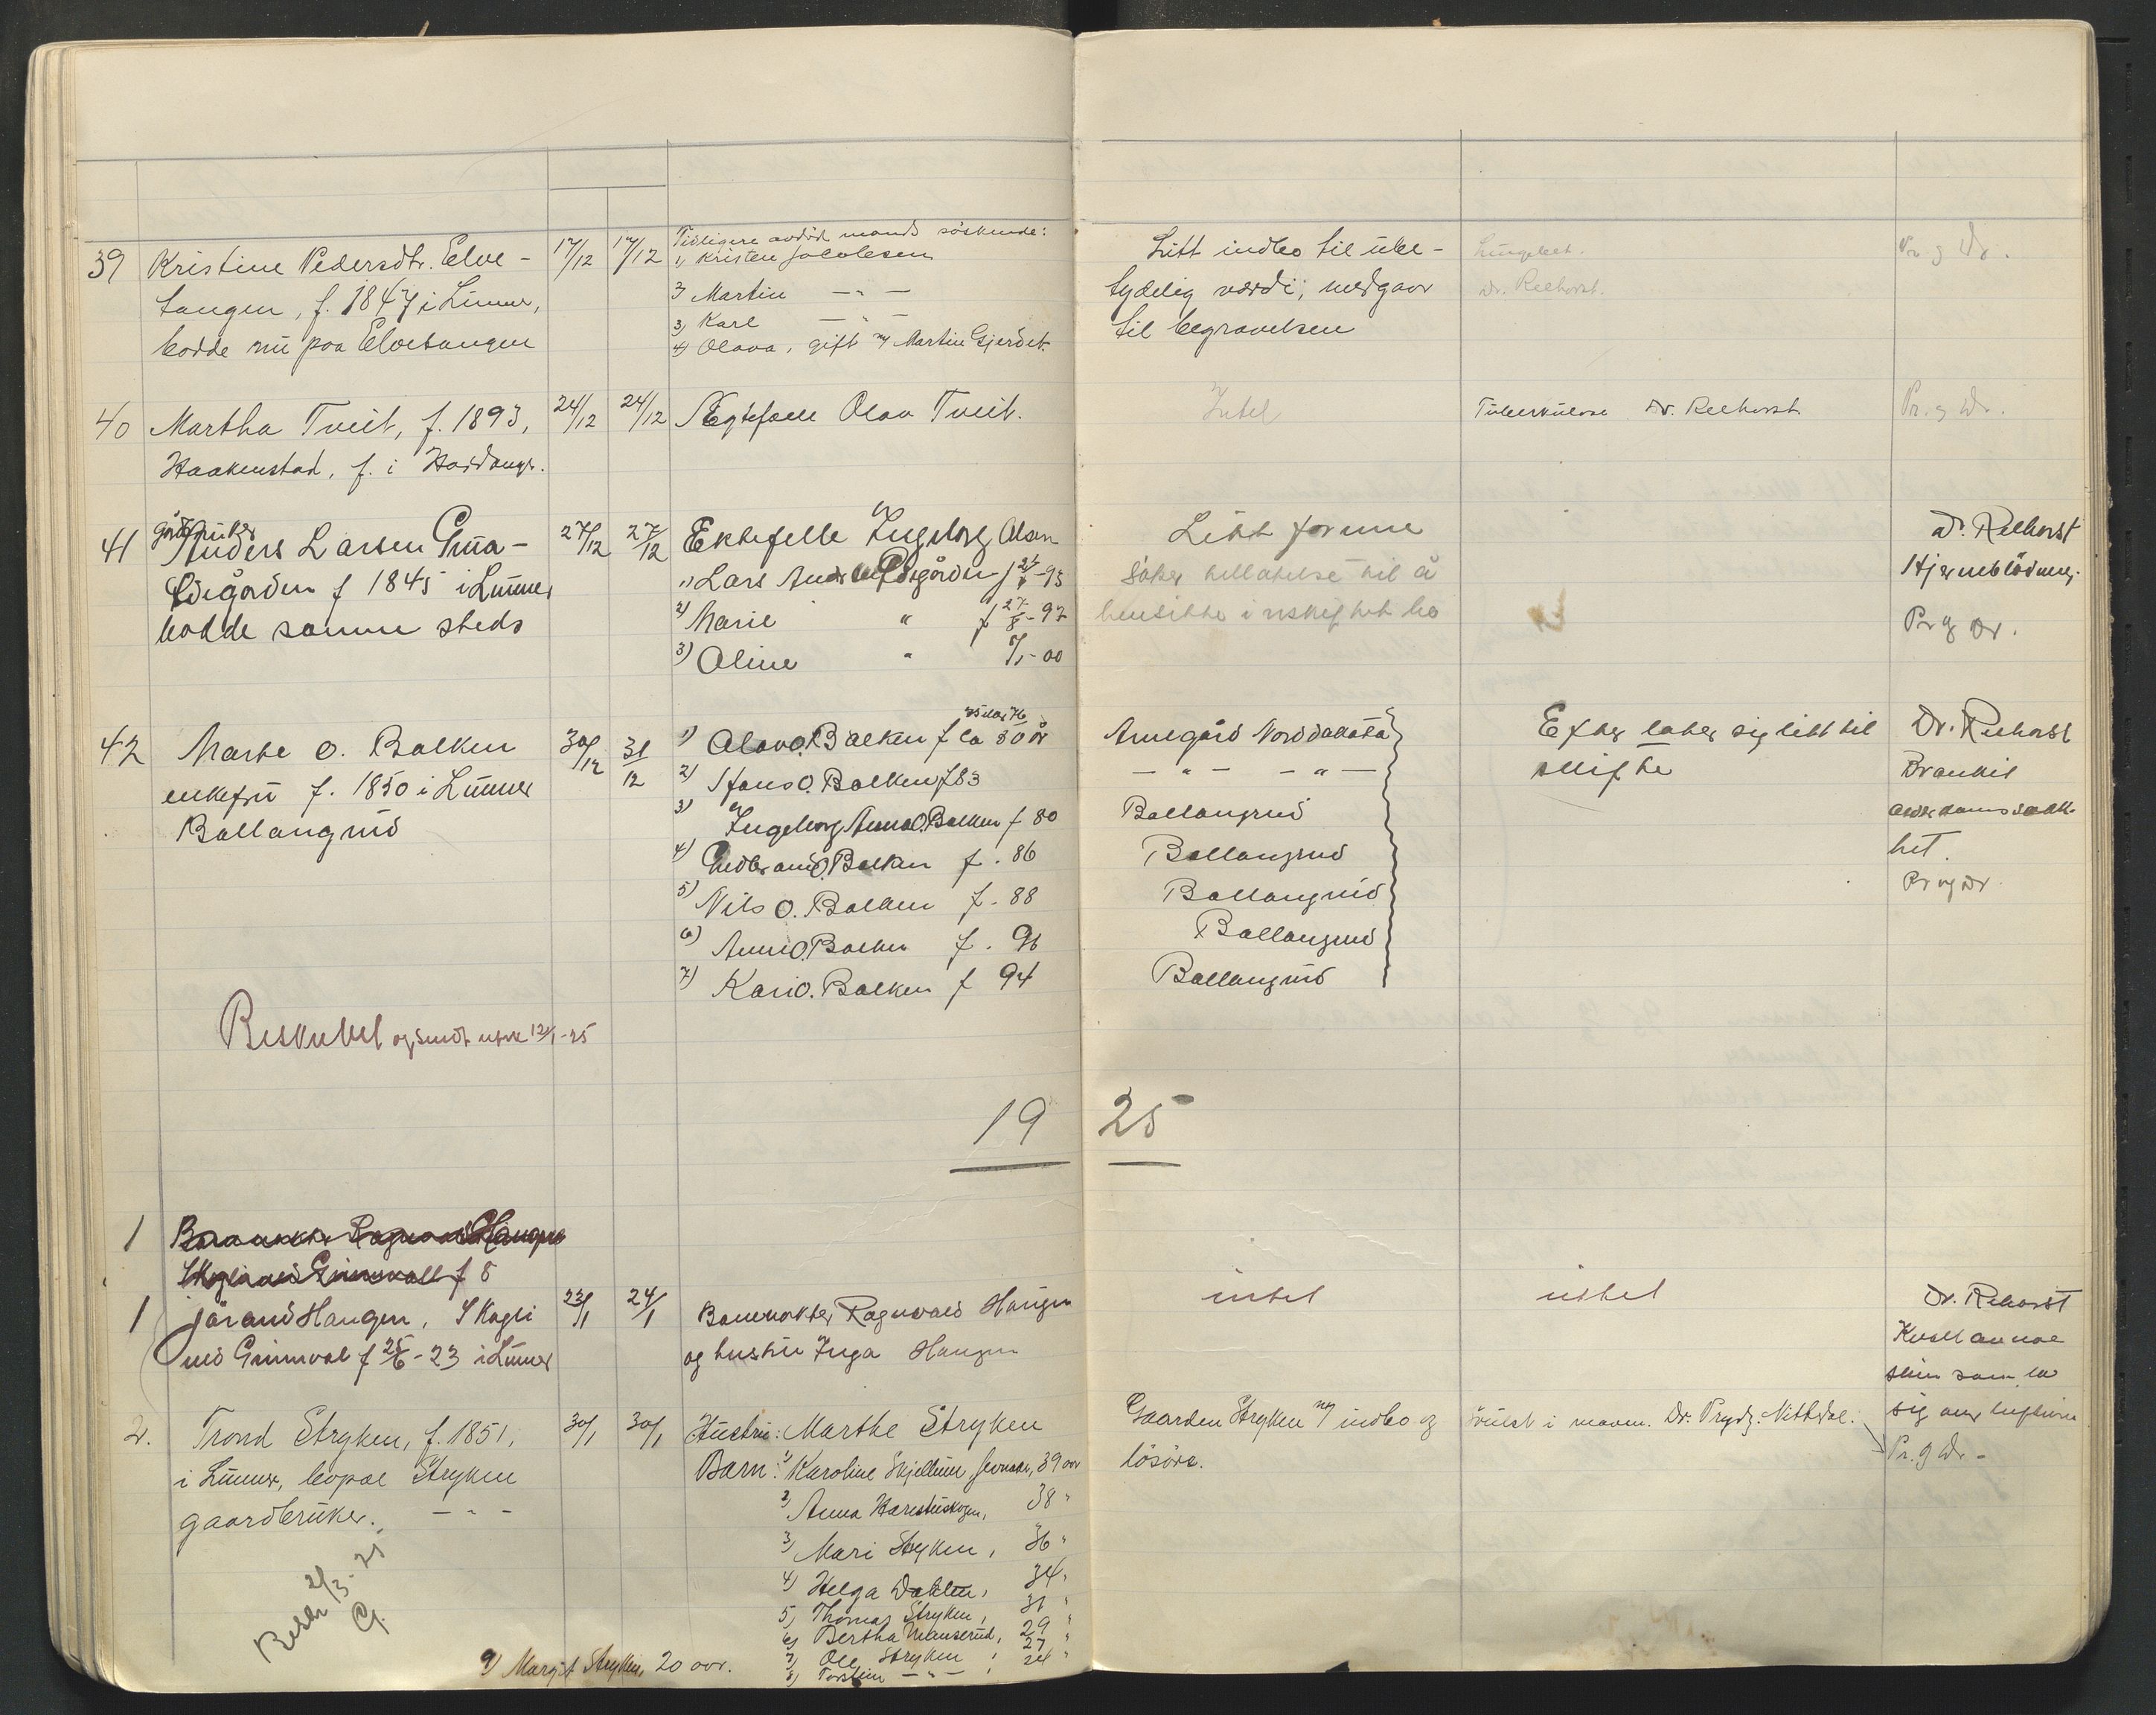 39 Kristine Pedersdtr. Elve-
tangen, f. 1847 i Lunner,
bodde nu paa Elvetangen
17/12 17/12
Tidligere avdød mands søskende:
1) Kristen Jacobsen
2) Martin — " —
3) Karl — " —
4) Olava, gift m/ Martin Gjerdet.
Litt indbo til ube-
tydelig værdi; medgaar
til begravelsen
Lungebet.
Dr. Reehorst.
Pr. g Dr.
40 Martha Tveit, f. 1893,
Haakenstad, f. i Hardanger.
24/12 24/12
Ægtefælle Olav Tveit.
Intet
Tuberkulose Dr. Reehorst
Pr. g Dr.
41 gårdbruker
Anders Larsen Grua-
Eidsgården f 1845 i Lunner
bodde samme steds
27/12 27/12
Ektefelle Ingeborg Olsen
1) Lars
2) Marie " f 27/8-97
3) Aline " 7/1-00
Litt formue
Søker tillatelse til å
hensitte i uskiftet bo
Dr. Reehorst
Hjerneblødning.
Pr g Dr.
42 Marte O. Balken
enkefru f. 1850 i Lunner
Ballangrud
30/12 31/12
1) Olav O. Balken f ca 50 år
2) Hans O. Balken f 83
3) Ingeborg Anna O. Balken f 80
4) Gudbrand O. Balken f. 86
5) Nils O. Balken f. 88
6) Anne O. Balken f. 96
7) Kari O. Balken f 94
Amegård Norddakota
— " — — " —
Ballangrud
Ballangrud
Ballangrud
Ballangrud
Ballangrud
Efter later sig litt til
skifte
Dr. Reehorst
Brankit
alderdomssvakk-
het.
Pr og Dr.
Beskuttet og sendt utskr 12/1-25
19 25
1
1 Jörand Haugen, Skogli
ved Grimsvol f 25/6-23 i Lunner
23/1 24/1
Banevokter Ragnvald Haugen
og hustru Inga Haugen
intet
intet
Dr. Rehorst
sig
Pr. g Dr.
2. Trond Stryken, f. 1851,
i Lunner, bopæl Stryken
gaardbruker. — " —
30/1 30/1
Hustru: Marthe Stryken
Barn: 1) Karoline Skjellum, Jevnaker, 39 aar
2) Anna Harestuskogen, 38 "
3) Mari Stryken, 36 "
4) Helga Dahlen, 34 "
5) Thomas Stryken, 31 "
6) Bertha Mauserud, 29 "
7) Ole Stryken, 27 "
8) Torstein — " —, 24 "
9) Margit Stryken, 20 aar.
Gaarden Stryken m/ indbo og
løsøre.
Svulst i maven. Dr. Prydz. Nittedal.
Besk 2/3-25
G.